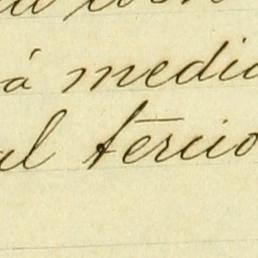 á media
al tercio